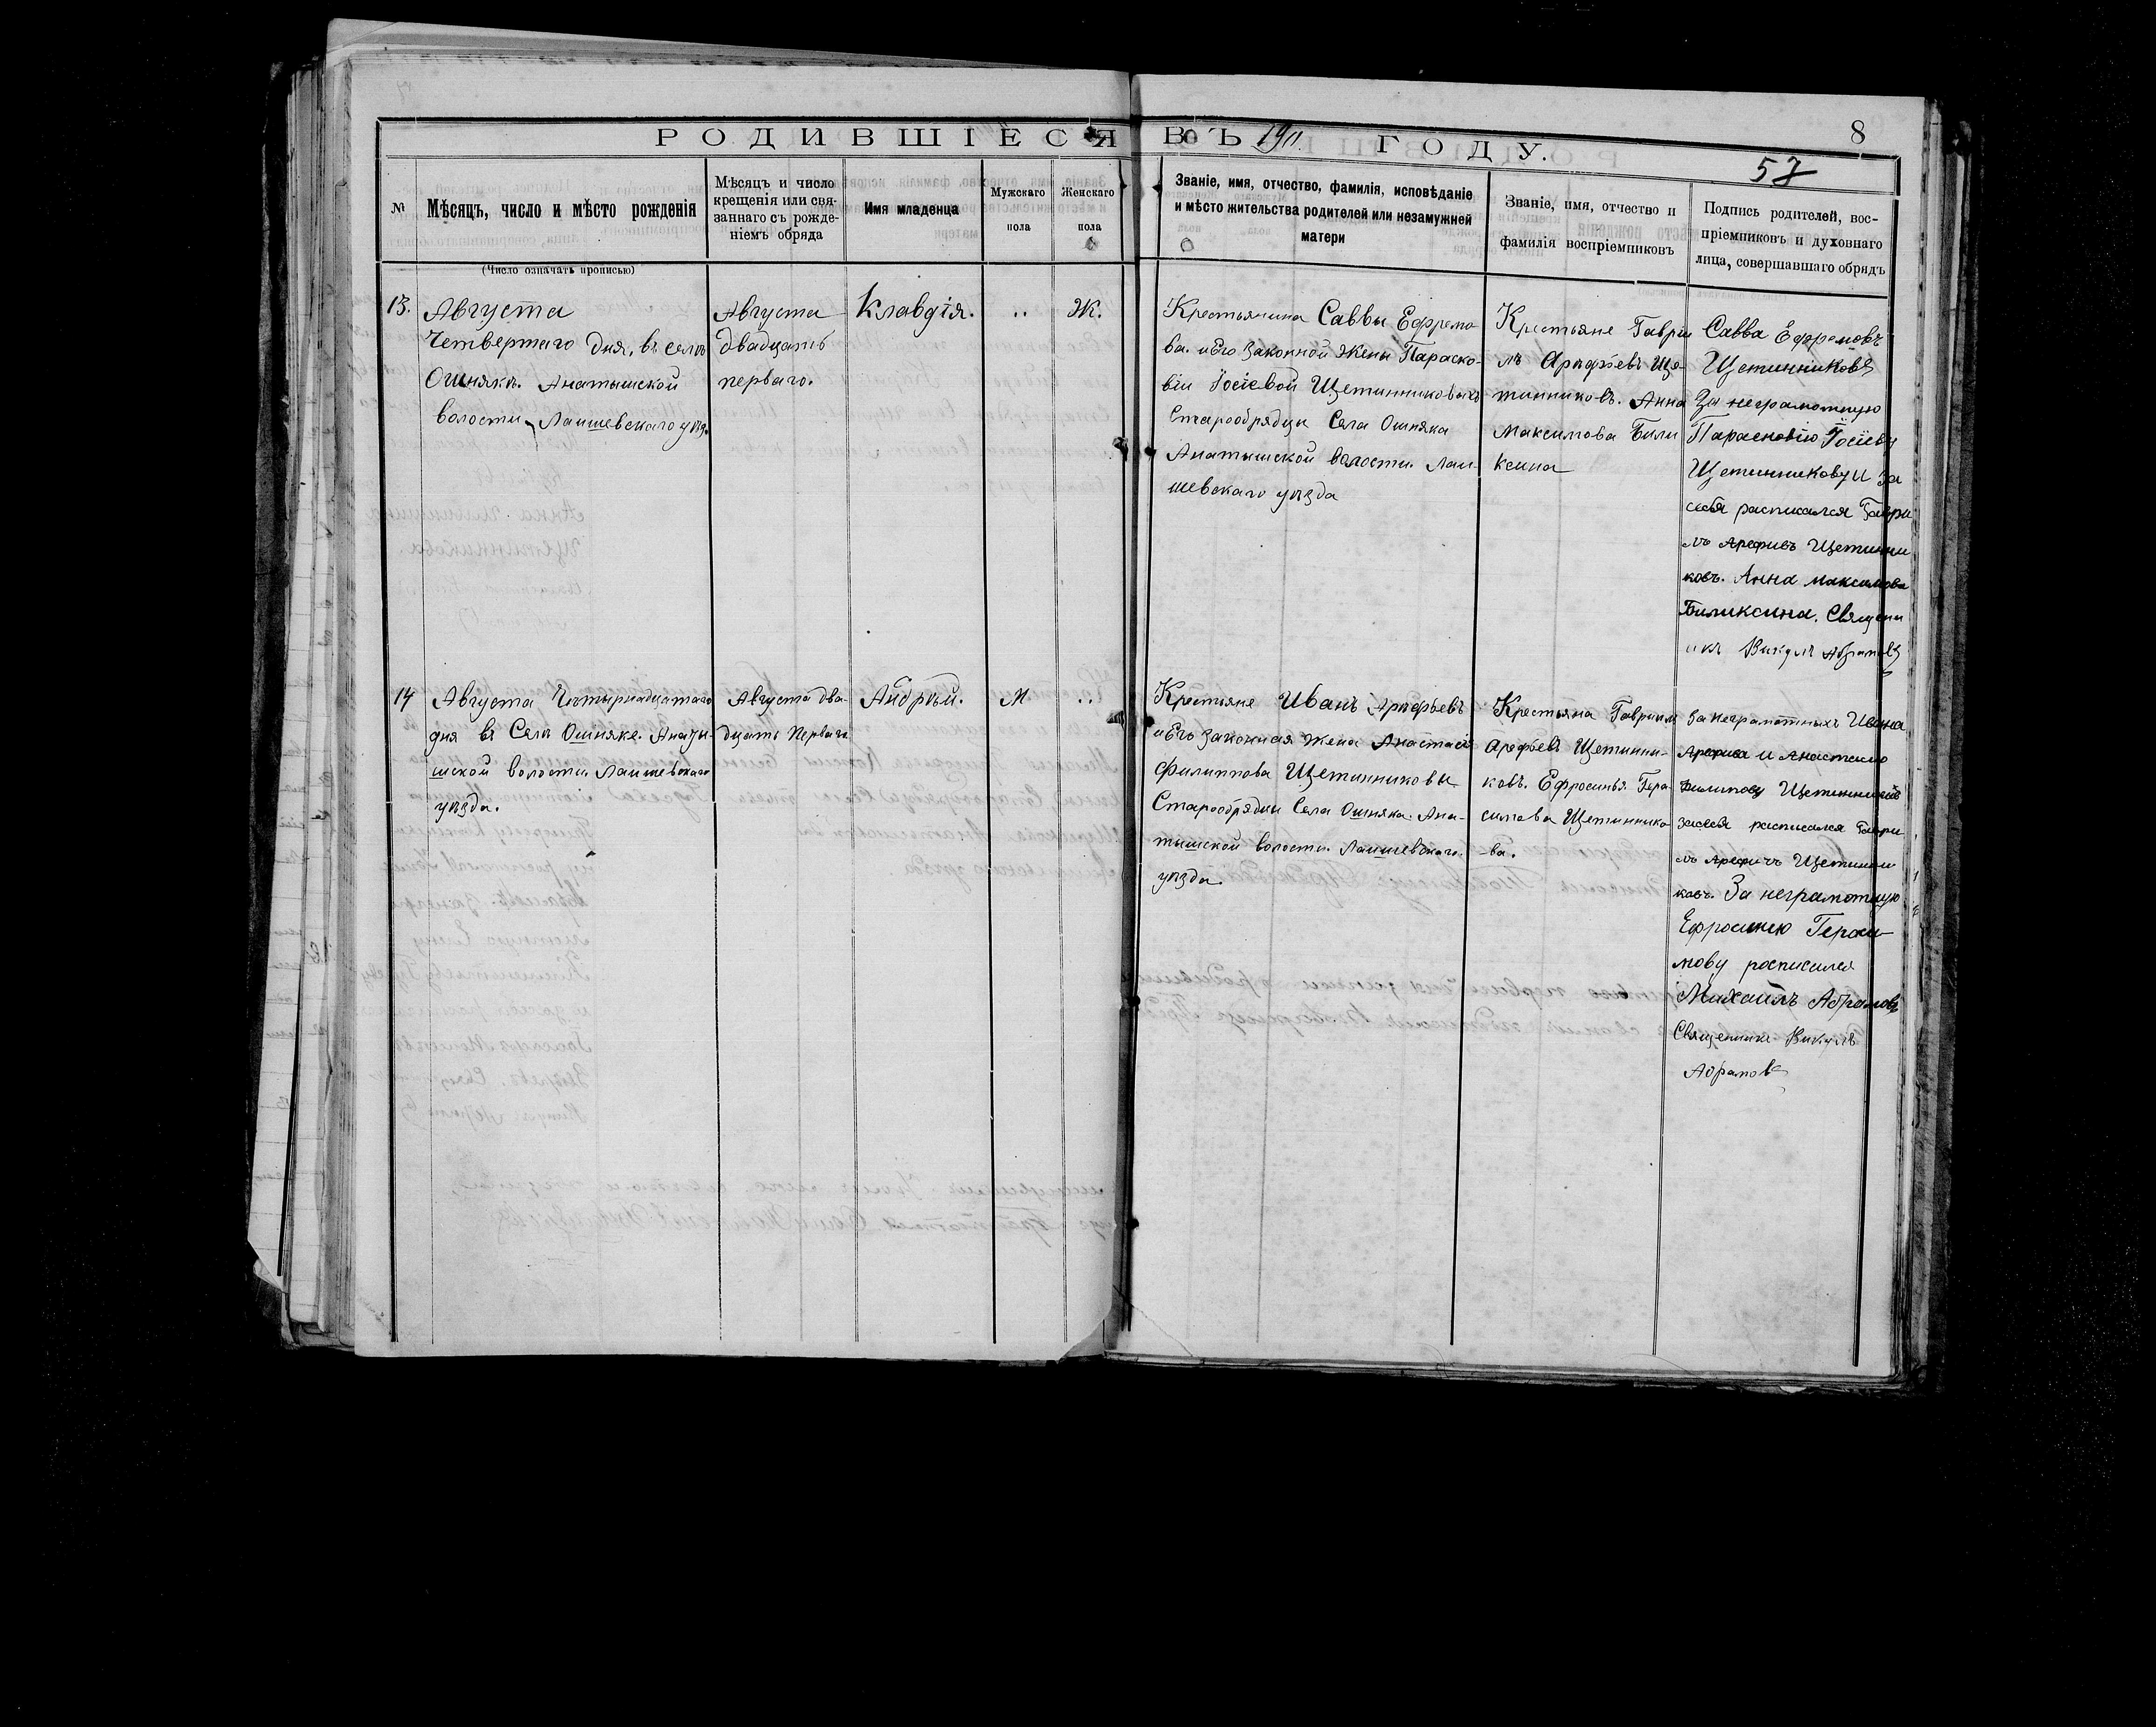 РОДИВШІЕСЯ ВЪ 1911 ГОДУ.
8
57
№
Мѣсяцъ, число и мѣсто рожденія
Мѣсяцъ и число
крещенія или свя-
заннаго съ рожде-
ніемъ обряда
Имя младенца
Мужскаго
пола
Женскаго
пола
Званіе, имя, отчество, фамилія, исповѣданіе
и мѣсто жительства родителей или незамужней
матери
Званіе, имя, отчество и
фамилія воспріемниковъ
Подпись родителей, вос-
пріемниковъ и духовнаго
лица, совершавшаго обрядъ
(Число означать прописью)
13.
Августа
Четвертаго дня, въ селѣ
Ошнякѣ. Анатышской
волости, Лаишевскаго уѣзд.
Августа
двадцать
перваго.
Клавдія.
..
Ж.
Крестьянина Саввы Ефремо
ва. и Его Законной Жены Параско-
віи Іосіевой Щетинниковыхъ
Старообрядцы Села Ошняка
Анатышской волости. Лаи-
шевскаго уѣзда
Крестьяне Гаврии
лъ Арефьевъ Ще-
тинниковъ. Анна
Максимова Били
ксина
Савва Ефремовъ
Щетинниковъ
За неграмотную
Парасковію Іосіеву
Щетинникову и за
себя расписался Гаври
лъ Арефивъ Щетинни
ковъ. Анна Максимова
Биликсина. Священн
икъ Викулъ Абрамовъ
14
Августа Четырнадцатаго
дня въ Селѣ Ошняке. Анаты-
шской волости Лаишевскаго
уѣзда.
Августа два-
дцать Перваго
Андрей.
М
..
Крестьяне Иванъ Арефьевъ
и Его Законная Жена Анастасія
Филиппова Щетинниковы
Старообрядцы Села Ошняка. Ана-
тышской волости. Лаишевскаго.
уѣзда.
Крестьяна Гавриилъ
Арефьевъ Щетинни-
ковъ. Ефросинья Гера-
симова Щетиннико
-ва.
За неграмотныхъ Ивана
Арефива и Анастасию
Филипову Щетинниковъ
засебя расписался Гаври
лъ Арефичъ Щетинни
ковъ. За неграмотную
Ефросинею Гераси-
мову росписился
Михаилъ Абрамовъ
Священникъ Викулъ
Абрамовъ